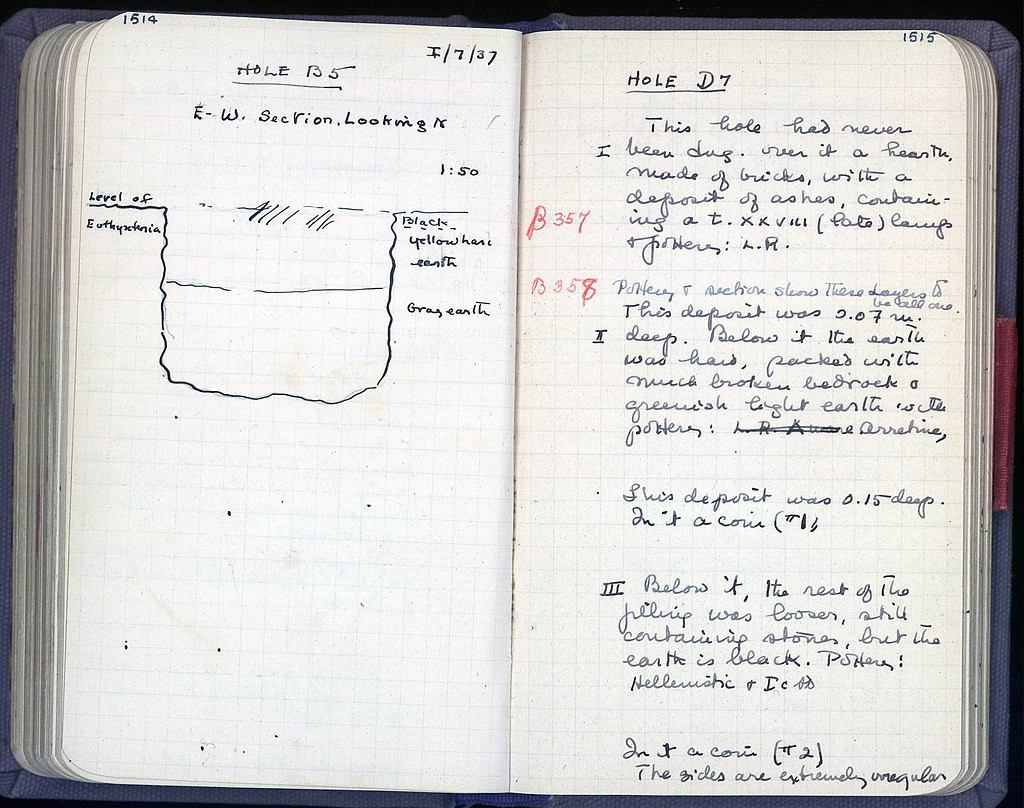 1514
I/7/37
HOLE B5
E-W. Section. Looking N
1:50
Level of
Euthynteria
Black
yellow hard
earth
Gray earth
1515
HOLE D7
This hole had never
I been dug. over it a hearth,
made of bricks, with a
deposit of ashes, contain-
B 357 ing a t. XXVIII (late) lamps
& pottery: L.R.
B 358 Pottery & section show these layers to
be all one.
This deposit was 0.07 m.
II deep. Below it the earth
was hard, packed with
much broken bedrock &
greenish light earth with
pottery: L.R. Arretine,
This deposit was 0.15 deep.
In it a coin (π1)
III Below it, the rest of the
filling was looser, still
containing stones, but the
earth is black. Pottery:
Hellenistic & I c AD
In it a coin (π2)
The sides are extremely irregular